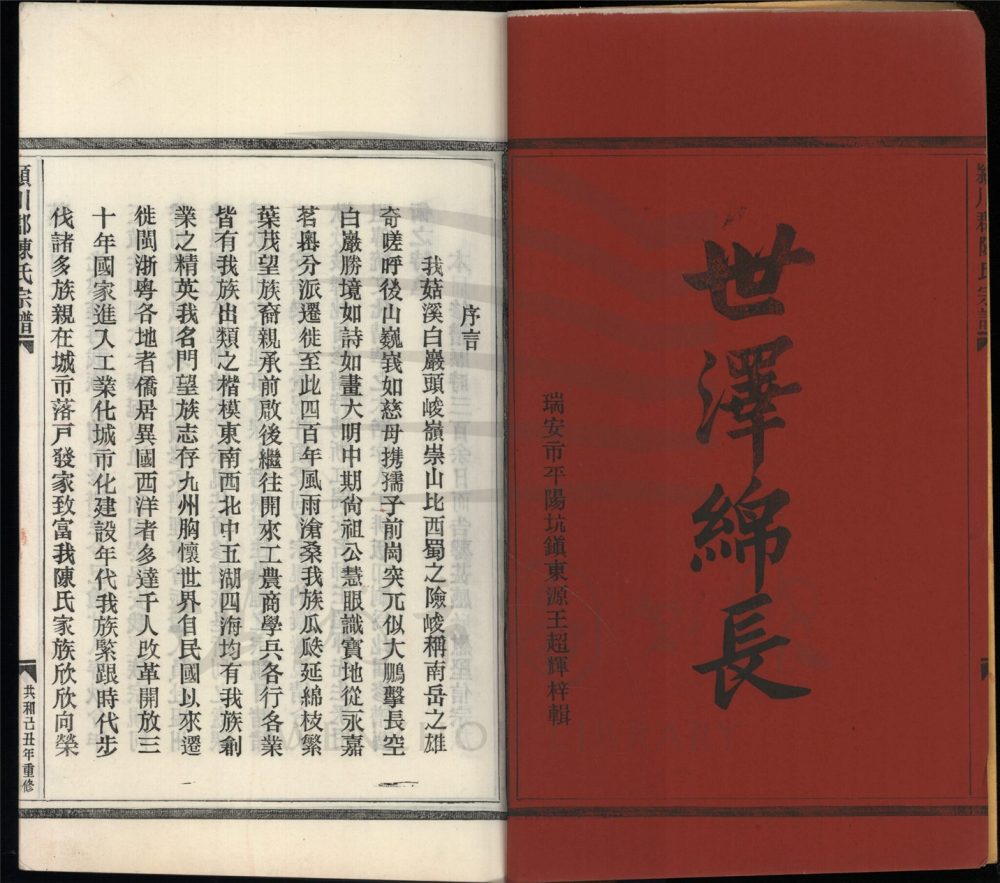 世澤綿長
瑞安市平陽坑鎮東源王超輝梓輯
序言
我菇溪白巖頭峻嶺崇山比西蜀之險峻稱南岳之雄
奇嗟呼後山巍峩如慈母携孺子前崗突兀似大鵬擊長空
白巖勝境如詩如畫大明中期尙祖公慧眼識寶地從永嘉
茗嶴分派遷徙至此四百年風雨滄桑我族瓜瓞延綿枝繁
葉茂望族裔親承前啟後繼往開來工農商學兵各行各業
皆有我族出類之楷模東南西北中五湖四海均有我族創
業之精英我名門望族志存九州胸懷世界自民國以來遷
徙閩浙粵各地者僑居異國西洋者多達千人改革開放三
十年國家進入工業化城市化建設年代我族緊跟時代步
伐諸多族親在城市落戶發家致富我陳氏家族欣欣向榮
潁川郡陳氏宗譜
共和己丑年重修